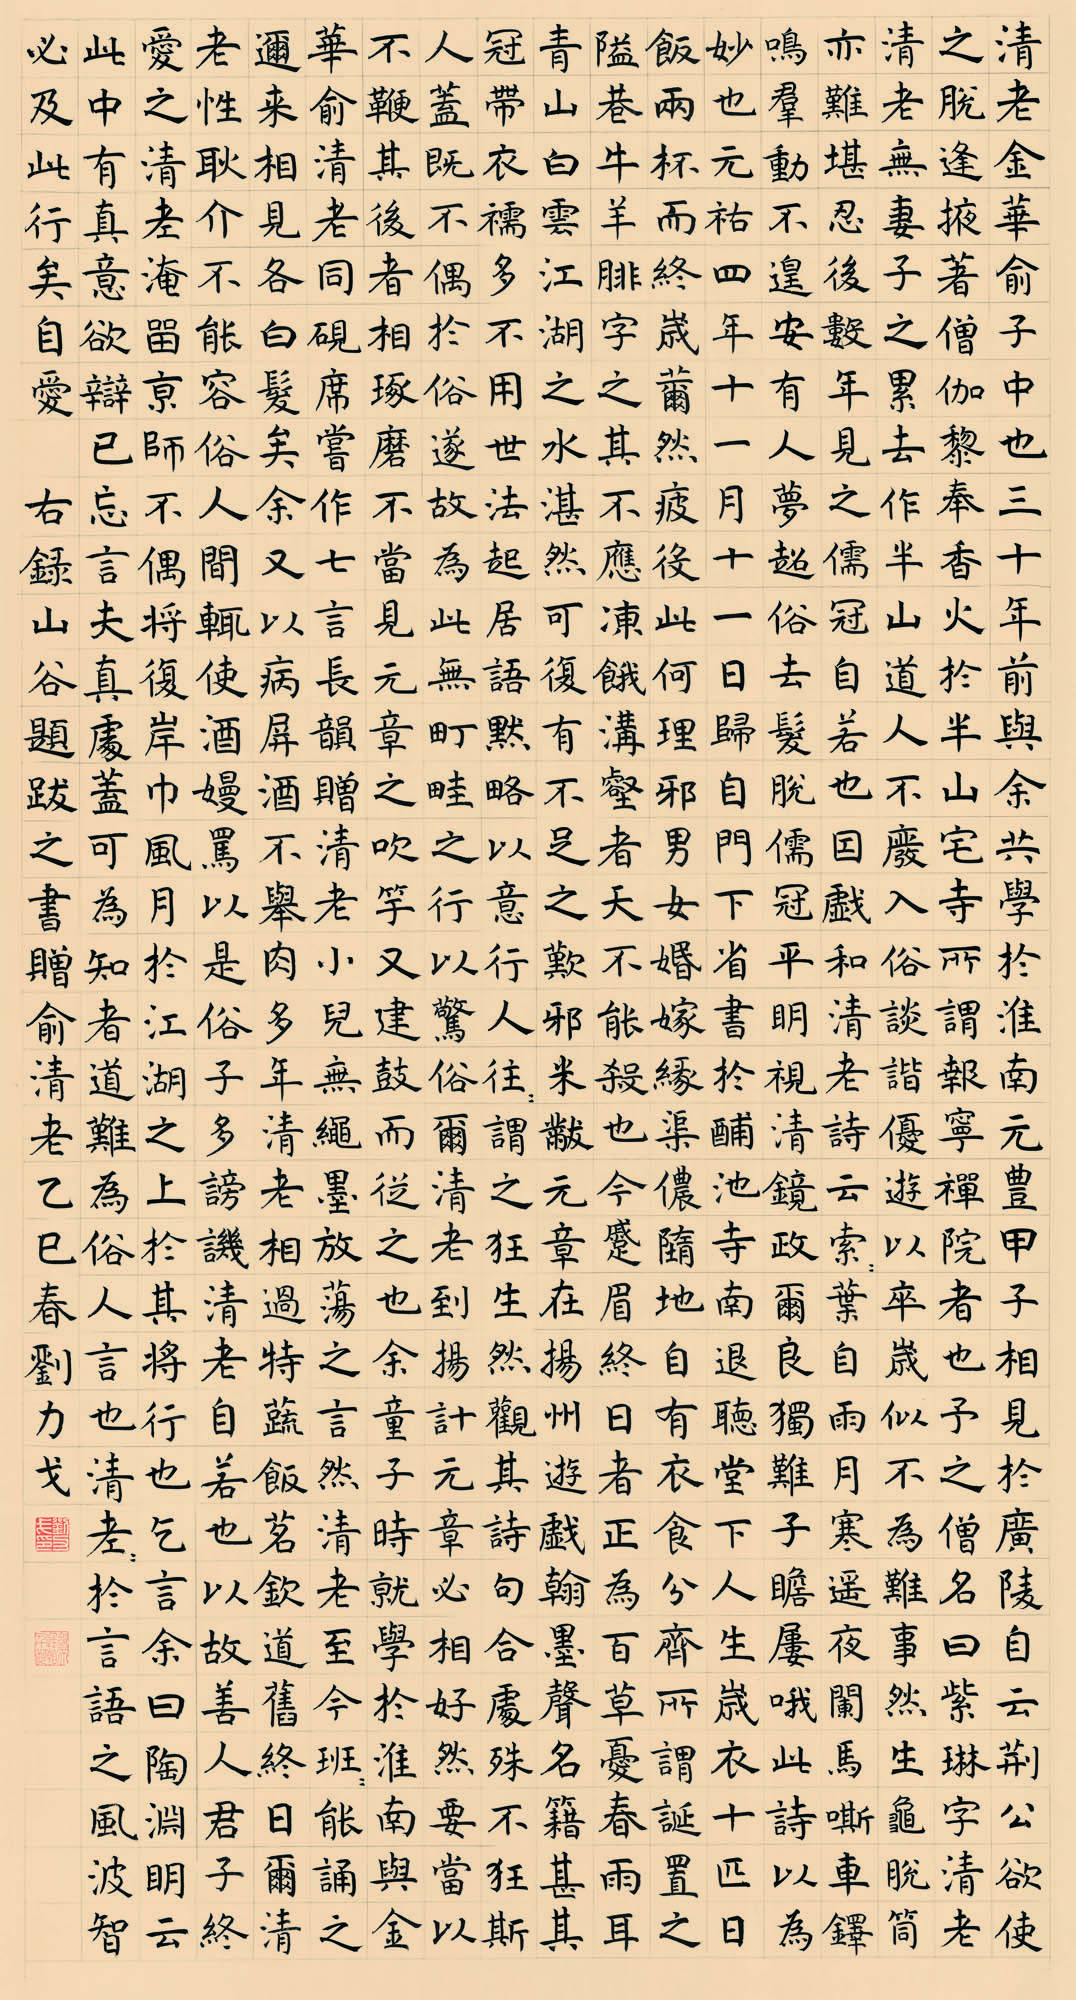 清老金華俞子中也三十年前與余共學於淮南元豊甲子相見於廣陵自云荆公欲使
之脫逢掖著僧伽黎奉香火於半山宅寺所謂報寧禪院者也予之僧名曰紫琳字清老
清老無妻子之累去作半山道人不廢入俗談諧優遊以卒歲似不為難事然生龜脫筒
亦難堪忍後數年見之儒冠自若也因戯和清老詩云索〻葉自雨月寒遥夜闌馬嘶車鐸
鳴羣動不遑安有人夢超俗去髮脫儒冠平明視清鏡政爾良獨難子瞻屢哦此詩以為
妙也元祐四年十一月十一日歸自門下省書於酺池寺南退聴堂下人生歲衣十匹日
飯兩杯而終歲薾然疲役此何理邪男女婚嫁緣渠儂隨地自有衣食分齊所謂誕置之
隘巷牛羊腓字之其不應凍餓溝壑者天不能殺也今蹙眉終日者正為百草憂春雨耳
青山白雲江湖之水湛然可復有不足之歎邪米黻元章在揚州遊戯翰墨聲名籍甚其
冠帶衣襦多不用世法起居語默略以意行人往〻謂之狂生然觀其詩句合處殊不狂斯
人蓋既不偶於俗遂故為此無町畦之行以驚俗爾清老到揚計元章必相好然要當以
不鞭其後者相琢磨不當見元章之吹竽又建鼓而從之也余童子時就學於淮南與金
華俞清老同硯席嘗作七言長韻贈清老小兒無繩墨放蕩之言然清老至今班〻能誦之
邇来相見各白髮矣余又以病屏酒不舉肉多年清老相過特蔬飯茗飲道舊終日爾清
老性耿介不能容俗人間輒使酒嫚罵以是俗子多謗譏清老自若也以故善人君子終
愛之清老淹留京師不偶将復岸巾風月於江湖之上於其将行也乞言余曰陶淵明云
此中有真意欲辯已忘言夫真處蓋可為知者道難為俗人言也清老〻於言語之風波智
必及此行矣自愛 右錄山谷題跋之書贈俞清老乙巳春劉力戈